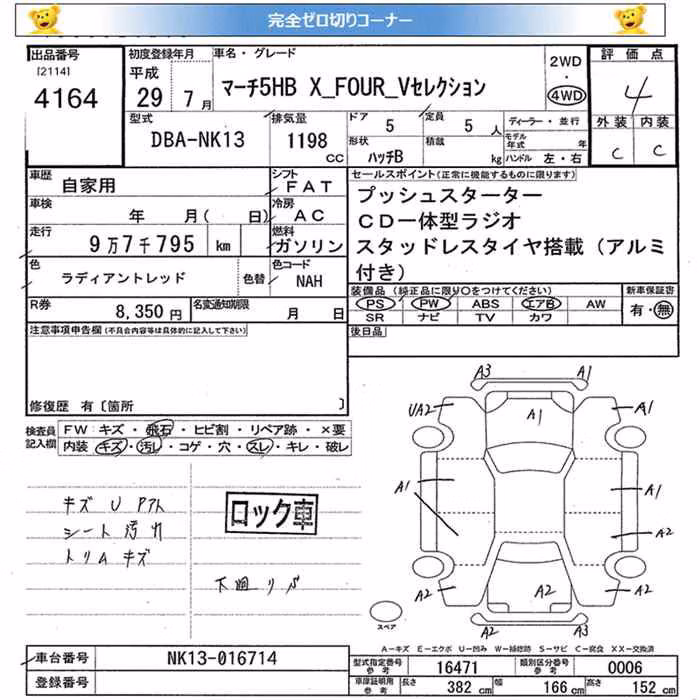 完全ゼロ切りコーナー
出品番号 初度登録年月 車名・グレード 2WD 評価点
[2114] 平成 マーチ5HB X_FOUR_Vセレクション ・ 4
4164 29年 7月 4WD
型式 排気量 ドア 定員 ディーラー・並行 外装 内装
DBA-NK13 1198 CC 5 5人 モデル年式 年 C C
形状 積載
ハッチB kg ハンドル 左・右
車歴 自家用 シフト FAT セールスポイント(正常に機能するものに限ります)
車検 年 月( 日) 冷房 AC プッシュスターター
走行 9万7千795 km 燃料 ガソリン CD一体型ラジオ
スタッドレスタイヤ搭載(アルミ
付き)
色 ラディアントレッド 色替 色コード NAH
装備品(純正品に限り○をつけてください) 新車保証書
PS PW ABS エアB AW 有・無
SR ナビ TV カワ
R券 8,350円 名変通知期限 月 日
注意事項申告欄(不具合内容等は具体的に記入して下さい) 後日品
修復歴 有〔箇所 〕
検査員 FW:キズ・飛石・ヒビ割・リペア跡・×要
記入欄 内装 キズ・汚レ・コゲ・穴・スレ・キレ・破レ
キズ U
シート 汚れ
トリム キズ
ロック車
下廻り
A3 A1
UA2 A1 A1
A1 A1
A2
A2 A2 A2
A2 A3
スペア
A-キズ E-エクボ U-凹み W-補修跡 S-サビ C-腐食 XX-交換済
車台番号 NK13-016714 型式指定番号 参考 16471 類別区分番号 参考 0006
登録番号 車庫証明用 参考 長さ 382 cm 幅 166 cm 高さ 152 cm